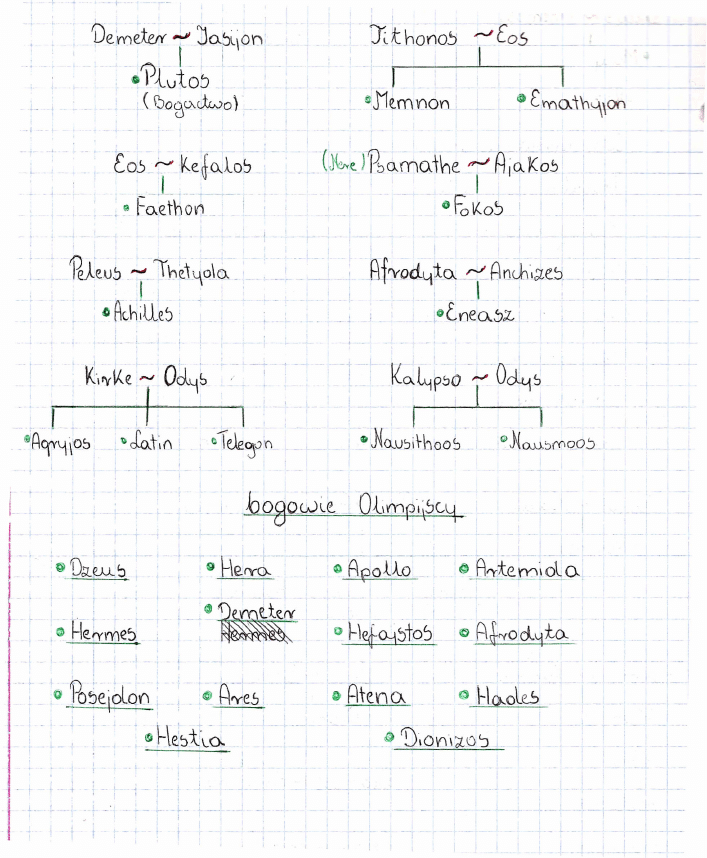 Demeter ~ Jasijon Tithonos ~ Eos
• Plutos
(Bogactwo) • Memnon • Emathyjon
Eos ~ Kefalos (Nere) Psamathe ~ Ajakos
• Faethon • Fokos
Peleus ~ Thetyda Afrodyta ~ Anchizes
• Achilles • Eneasz
Kirke ~ Odys Kalypso ~ Odys
• Agryjos • Latin • Telegon • Nausithoos • Nausinoos
bogowie Olimpijscy
• Dzeus • Hera • Apollo • Artemida
• Demeter
• Hermes Hermes • Hefajstos • Afrodyta
• Posejdon • Ares • Atena • Hades
• Hestia • Dionizos